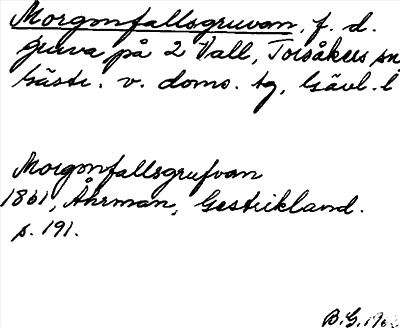 Morgonfallsgruvan, f. d.
gruva på 2 Vall, Torsåkers sn
Gästr. v. doms. tg, Gävl. l
Morgonfallsgrufvan
1861, Åhrman, Gestrikland.
s. 191.
B.G.